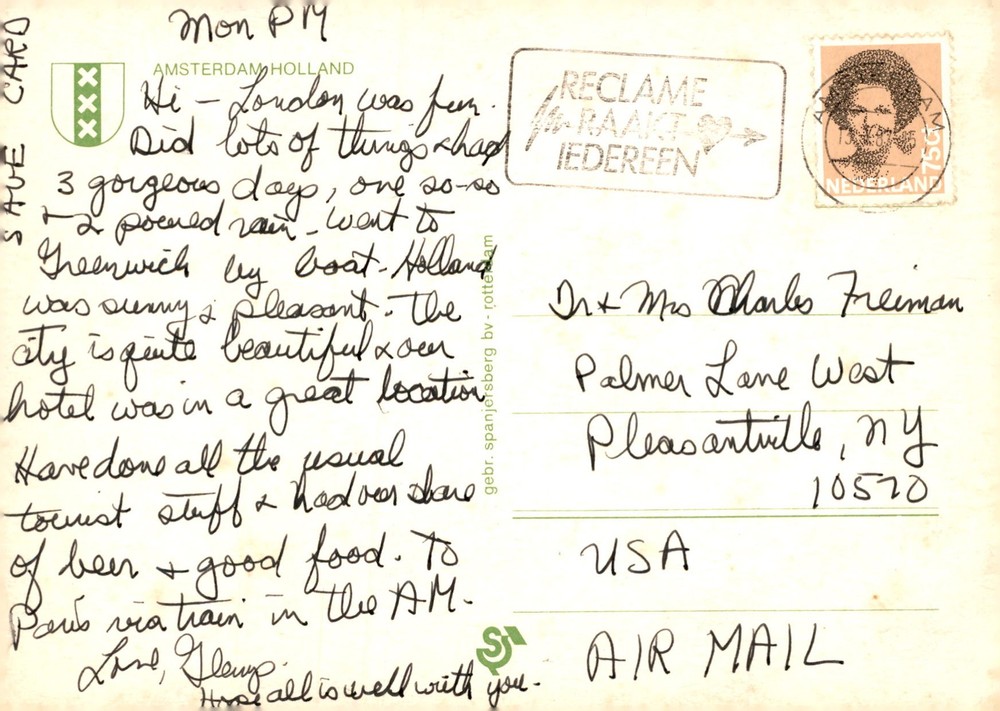 SAVE CARD
Mon PM
AMSTERDAM, HOLLAND
Hi - London was fun.
Did lots of things & had
3 gorgeous days, one so-so
& 2 poured rain - went to
Greenwich by boat - Holland
was sunny & pleasant - The
city is quite beautiful & our
hotel was in a great location
Have done all the usual
tourist stuff & had our share
of beer & good food. To
Paris via train in the AM.
Love,
Hope all is well with you.
gebr. spanjersberg bv - rotterdam
RECLAME
RAAKT
IEDEREEN
AM AM
75c
NEDERLAND
Dr & Mrs Charles Freiman
Palmer Lane West
Pleasantville, NY
10570
USA
AIR MAIL